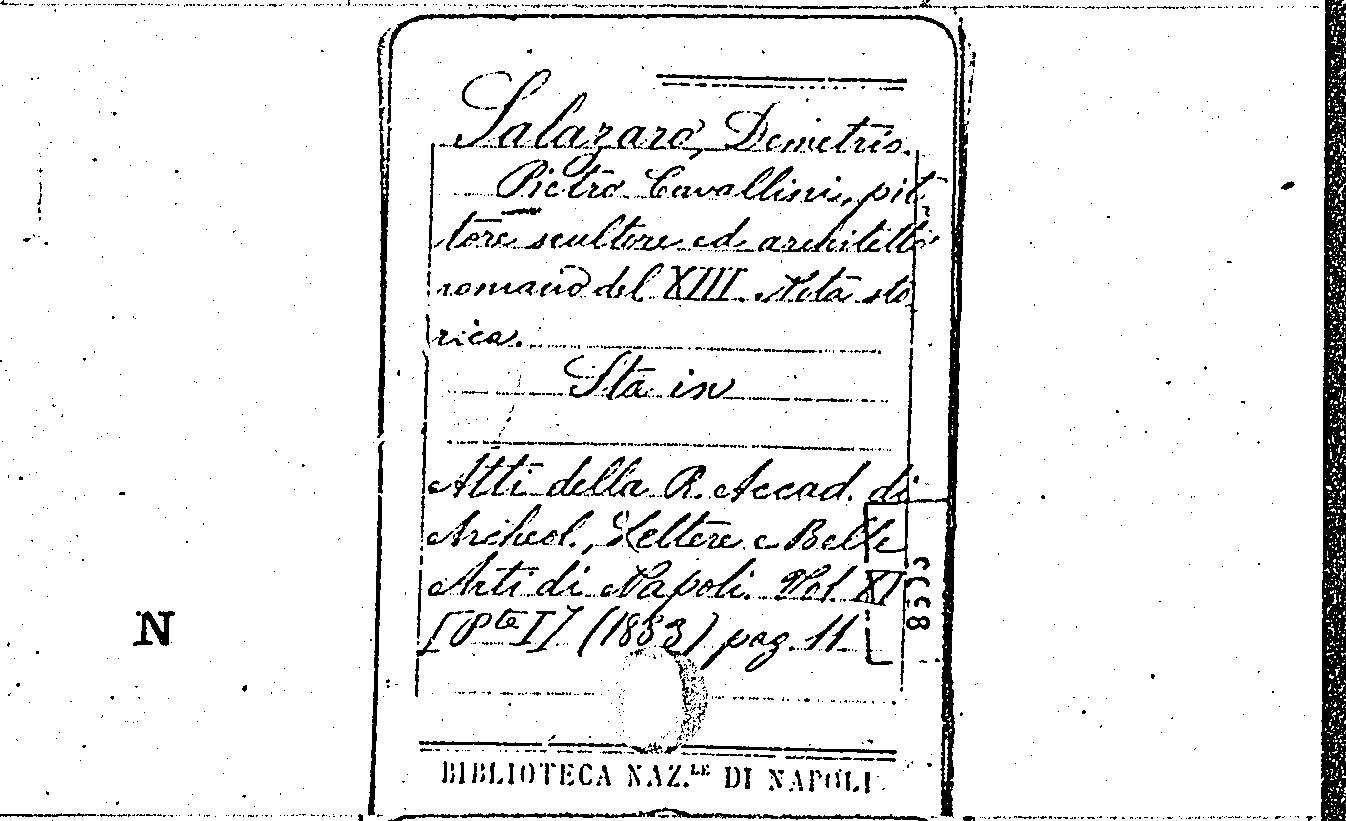 Salazaro, Demetrio.
Pietro Cavallini, pit-
tore scultore ed architetto
romano del XIII. Nota sto
rica.
Sta in
Atti della R. Accad. di
Archeol., Lettere e Belle
Arti di Napoli. Vol. XI
[Pte I] (1883) pag. 11
N
BIBLIOTECA NAZ.LE DI NAPOLI